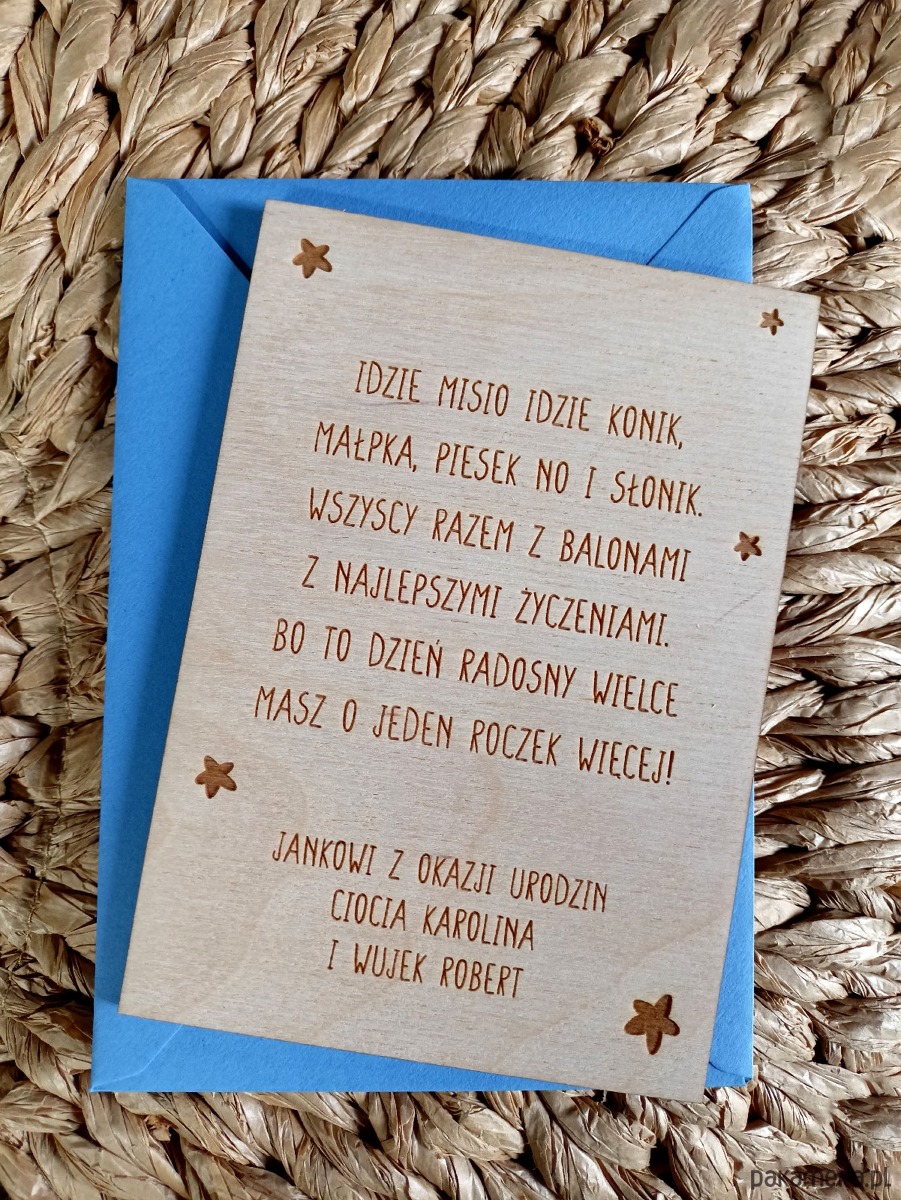 IDZIE MISIO IDZIE KONIK,
MAŁPKA, PIESEK NO I SŁONIK.
WSZYSCY RAZEM Z BALONAMI
Z NAJLEPSZYMI ŻYCZENIAMI.
BO TO DZIEŃ RADOSNY WIELCE
MASZ O JEDEN ROCZEK WIĘCEJ!
JANKOWI Z OKAZJI URODZIN
CIOCIA KAROLINA
I WUJEK ROBERT
pakamera.pl